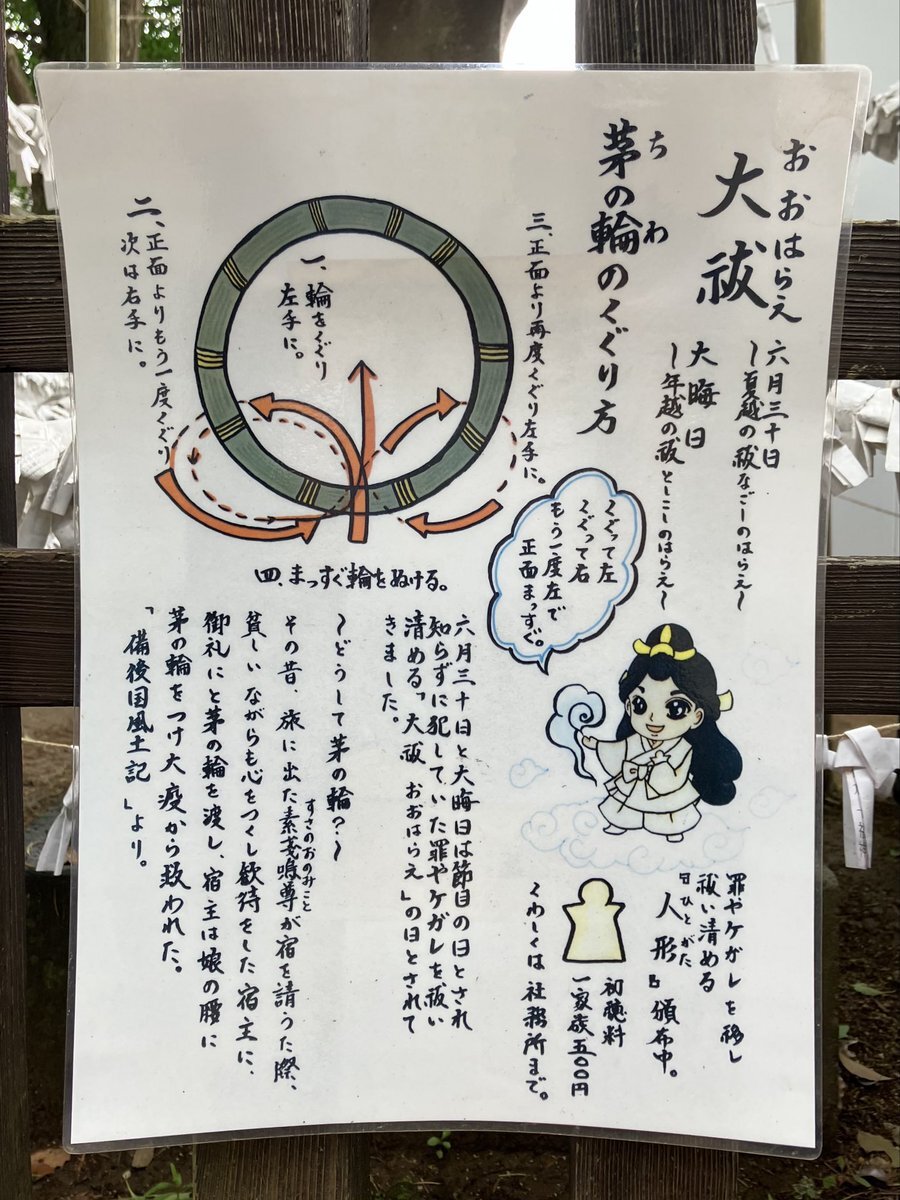 おおはらえ
大祓
六月三十日
〜夏越の祓なごしのはらえ〜
大晦日
〜年越の祓としこしのはらえ〜
ちわ
茅の輪のくぐり方
三、正面より再度くぐり左手に。
一、輪をくぐり
左手に。
二、正面よりもう一度くぐり
次は右手に。
四、まっすぐ輪をぬける。
くぐって左
くぐって右
もう一度左で
正面まっすぐ。
罪やケガレを移し
祓い清める
『人形』頒布中。
ひとがた
初穂料
一家族五〇〇円
くわしくは社務所まで。
六月三十日と大晦日は節目の日とされ
知らずに犯していた罪やケガレを祓い
清める「大祓 おおはらえ」の日とされて
きました。
〜どうして茅の輪?〜
すさのおのみこと
その昔、旅に出た素戔嗚尊が宿を請うた際、
貧しいながらも心をつくし歓待をした宿主に、
御礼にと茅の輪を渡し、宿主は娘の腰に
茅の輪をつけ大疫から救われた。
「備後国風土記」より。